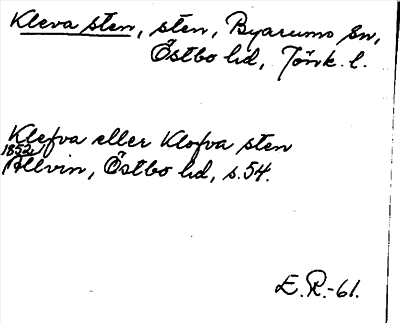 Kleva sten, sten, Byarums sn,
Östbo hd, Jönk. l.
Klefva eller Klofva sten
1852
Allvin, Östbo hd, s. 54.
E. R. -61.